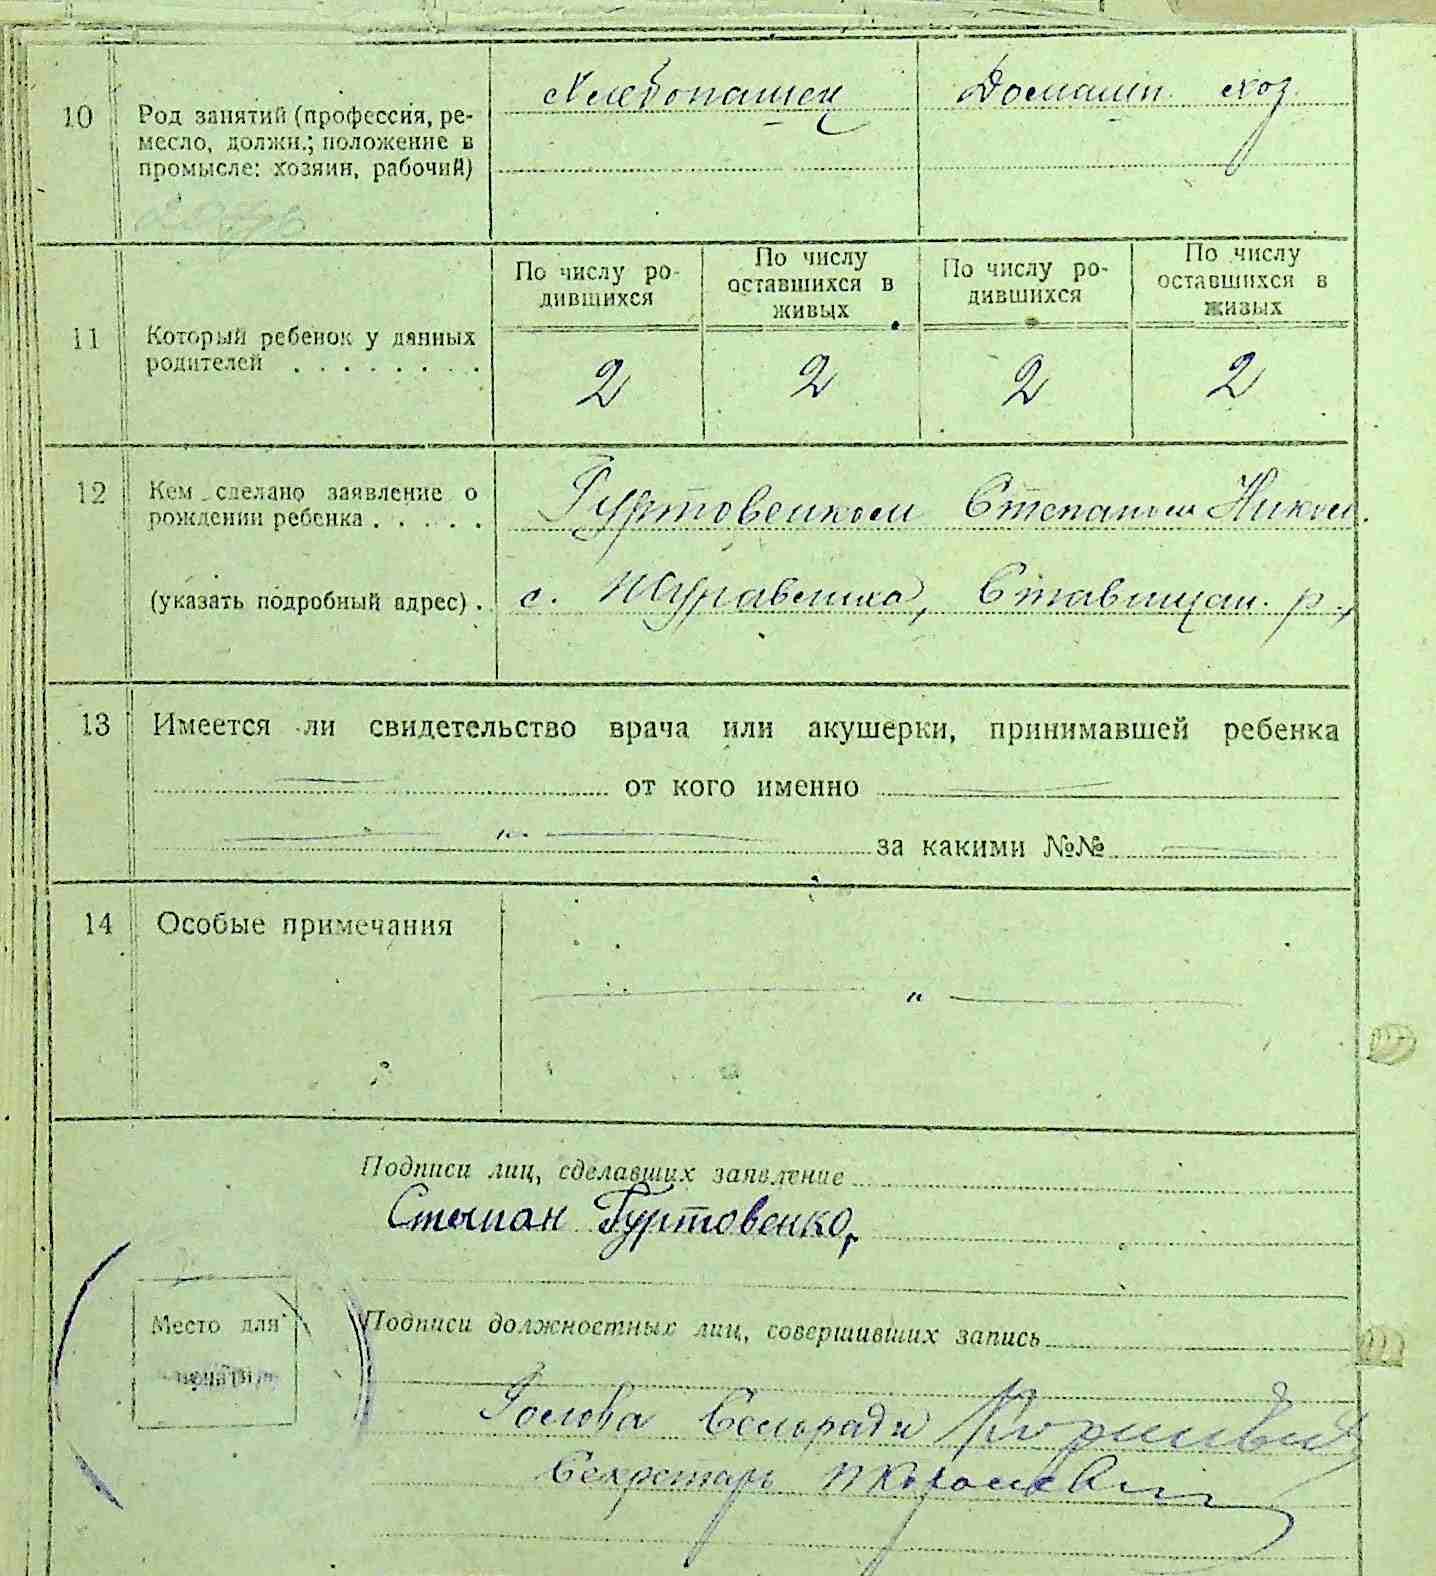 10
Род занятий (профессия, ре-
месло, должн.; положение в
промысле: хозяин, рабочий)
Хлебопашец
Домашн. хоз.
11
Который ребенок у данных
родителей . . . . . . . .
По числу ро-
дившихся
По числу
оставшихся в
живых
По числу ро-
дившихся
По числу
оставшихся в
живых
2 2 2 2
12
Кем сделано заявление о
рождении ребенка . . . . .
(указать подробный адрес) .
Гуртовенком Степаном Никол.
с. Журавлиха, Ставищан. р.,
13
Имеется ли свидетельство врача или акушерки, принимавшей ребенка
от кого именно
за какими №№
14
Особые примечания
Подписи лиц, сделавших заявление
Степан Гуртовенко,
Место для
печати
Подписи должностных лиц, совершивших запись
Голова Сельради
Секретарь